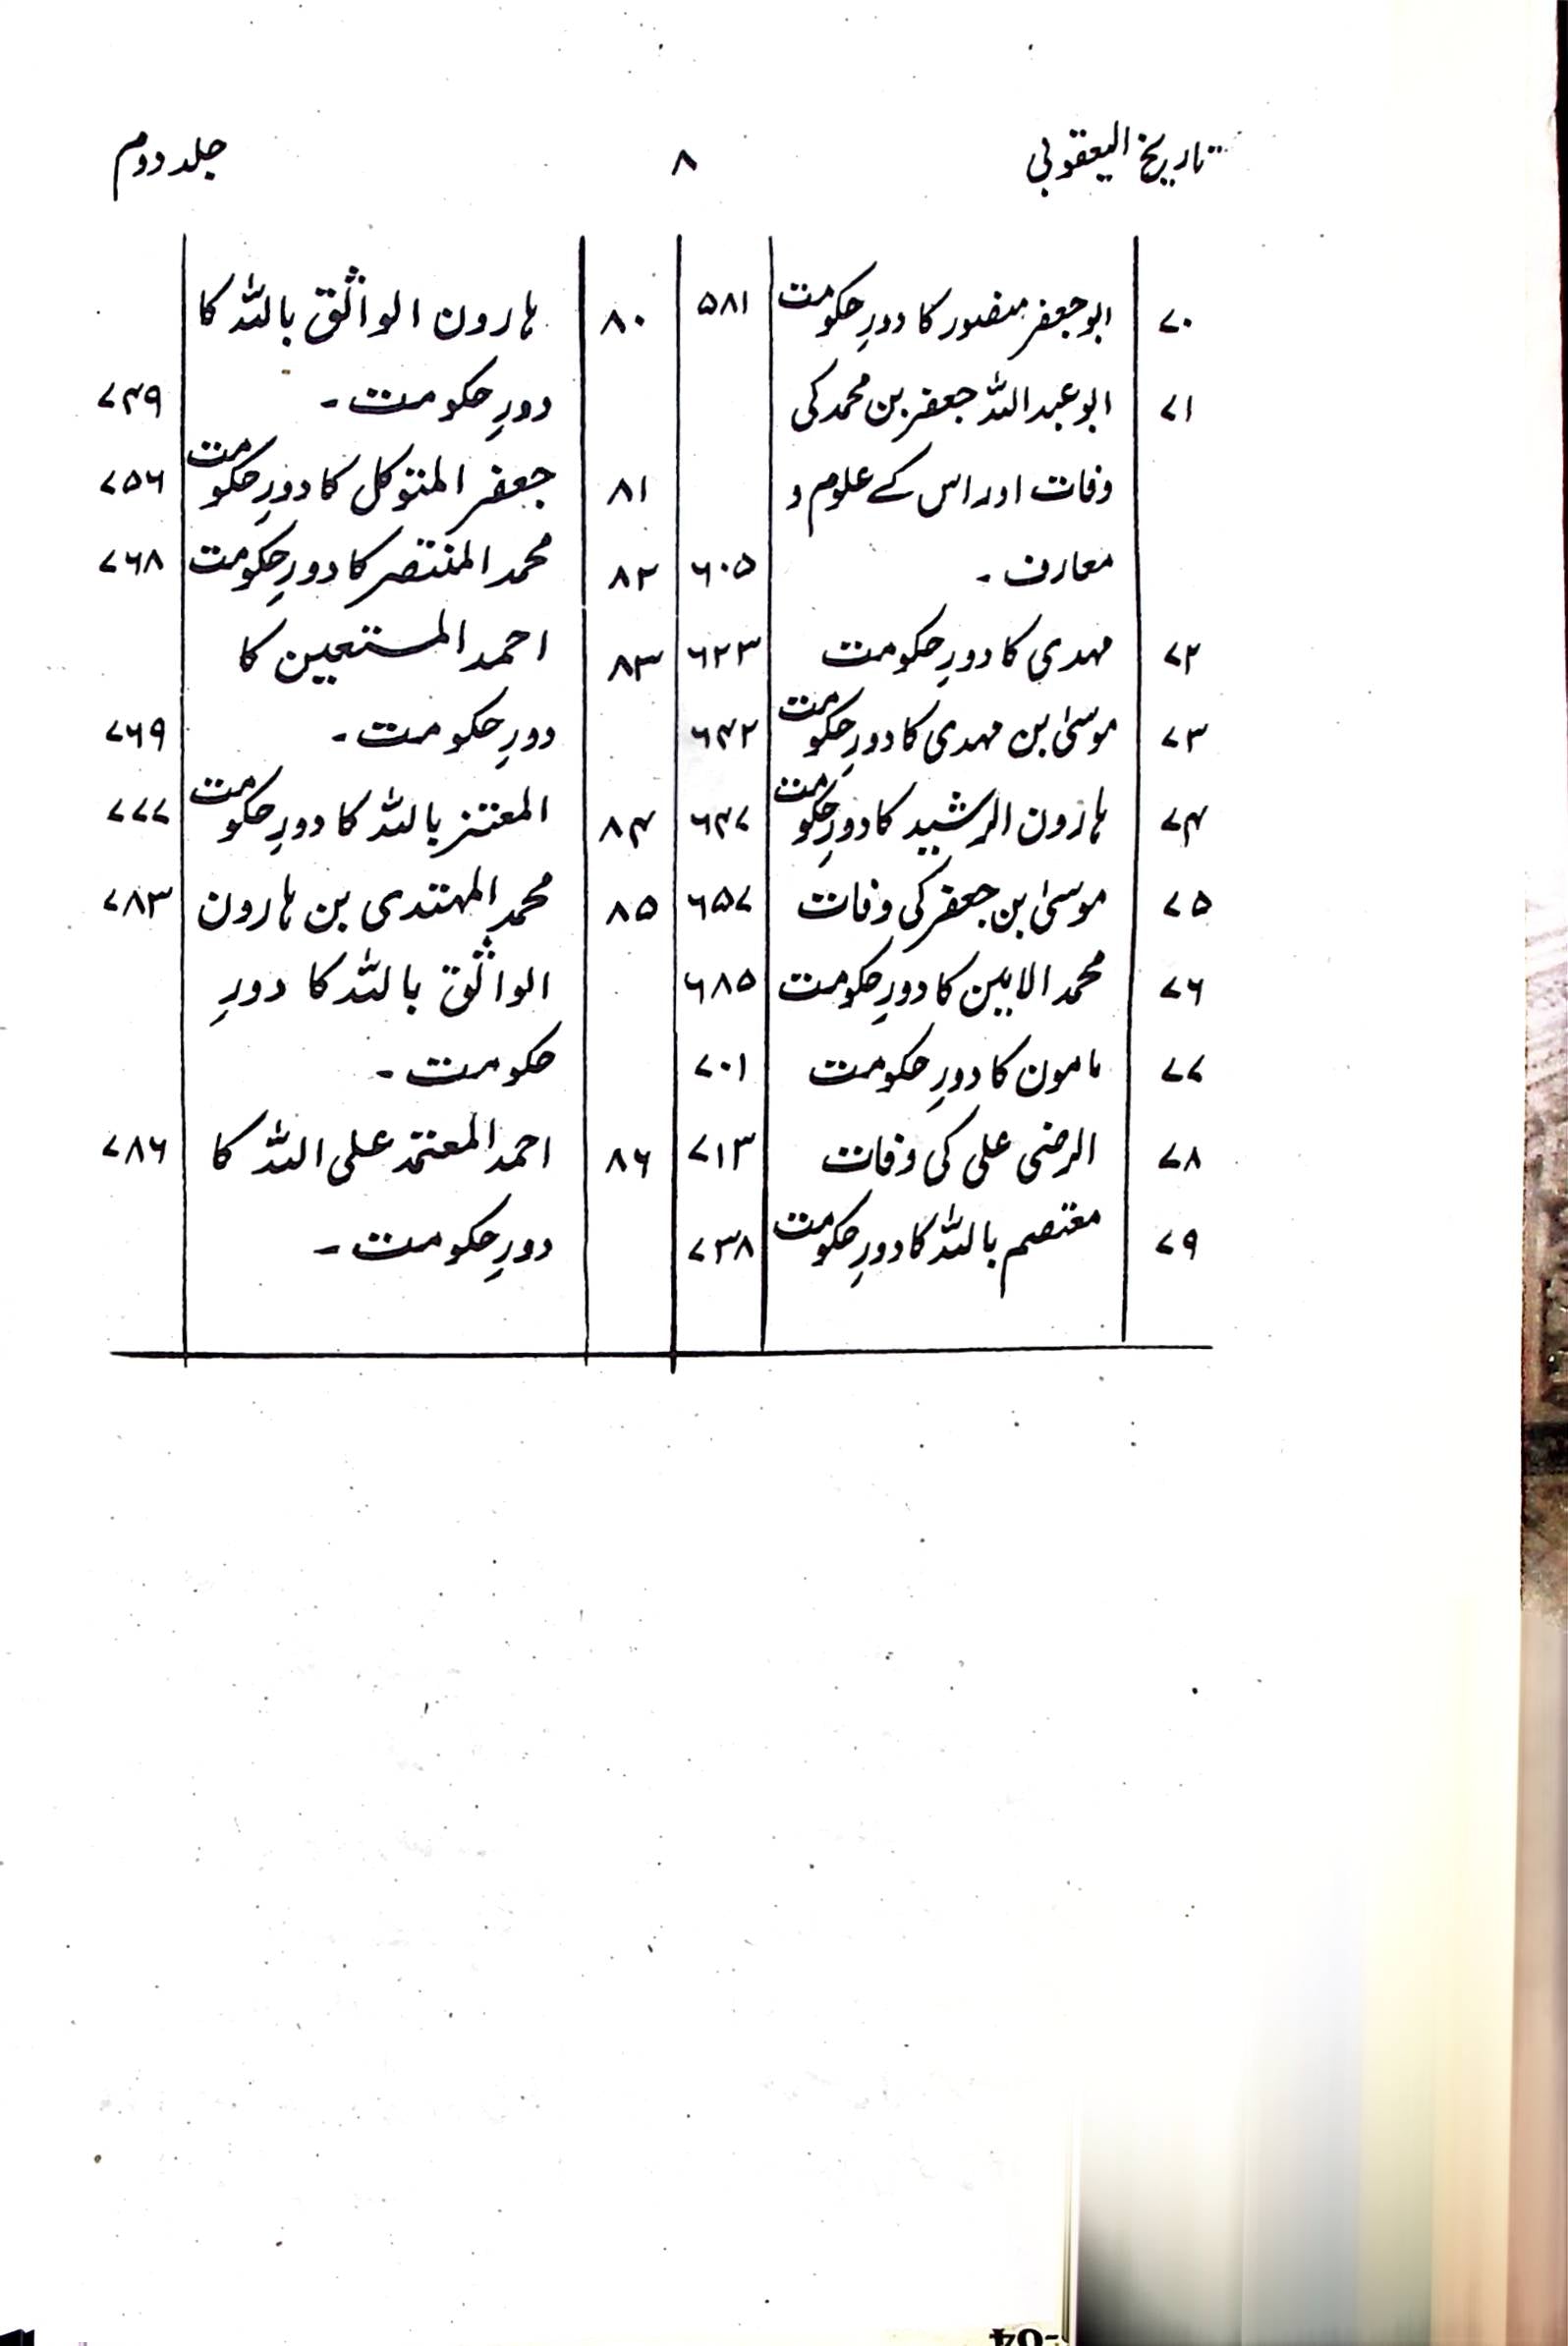 تاریخ الیعقوبی ۸ جلد دوم
۷۰ ابوجعفر منصور کا دورِ حکومت ۵۸۱
۷۱ ابوعبداللہ جعفر بن محمد کی
وفات اور اس کے علوم و
معارف ۔ ۶۰۵
۷۲ مہدی کا دورِ حکومت ۶۲۳
۷۳ موسیٰ بن مہدی کا دورِ حکومت ۶۴۲
۷۴ ہارون الرشید کا دورِ حکومت ۶۴۷
۷۵ موسیٰ بن جعفر کی وفات ۶۵۷
۷۶ محمد الامین کا دورِ حکومت ۶۸۵
۷۷ مامون کا دورِ حکومت ۷۰۱
۷۸ الرضی علی کی وفات ۷۱۳
۷۹ معتصم باللہ کا دورِ حکومت ۷۳۸
۸۰ ہارون الواثق باللہ کا
دورِ حکومت ۔ ۷۴۹
۸۱ جعفر المتوکل کا دورِ حکومت ۷۵۶
۸۲ محمد المنتصر کا دورِ حکومت ۷۶۸
۸۳ احمد المستعین کا
دورِ حکومت ۔ ۷۶۹
۸۴ المعتز باللہ کا دورِ حکومت ۷۷۷
۸۵ محمد المہتدی بن ہارون ۷۸۳
الواثق باللہ کا دورِ
حکومت ۔
۸۶ احمد المعتمد علی اللہ کا ۷۸۶
دورِ حکومت ۔